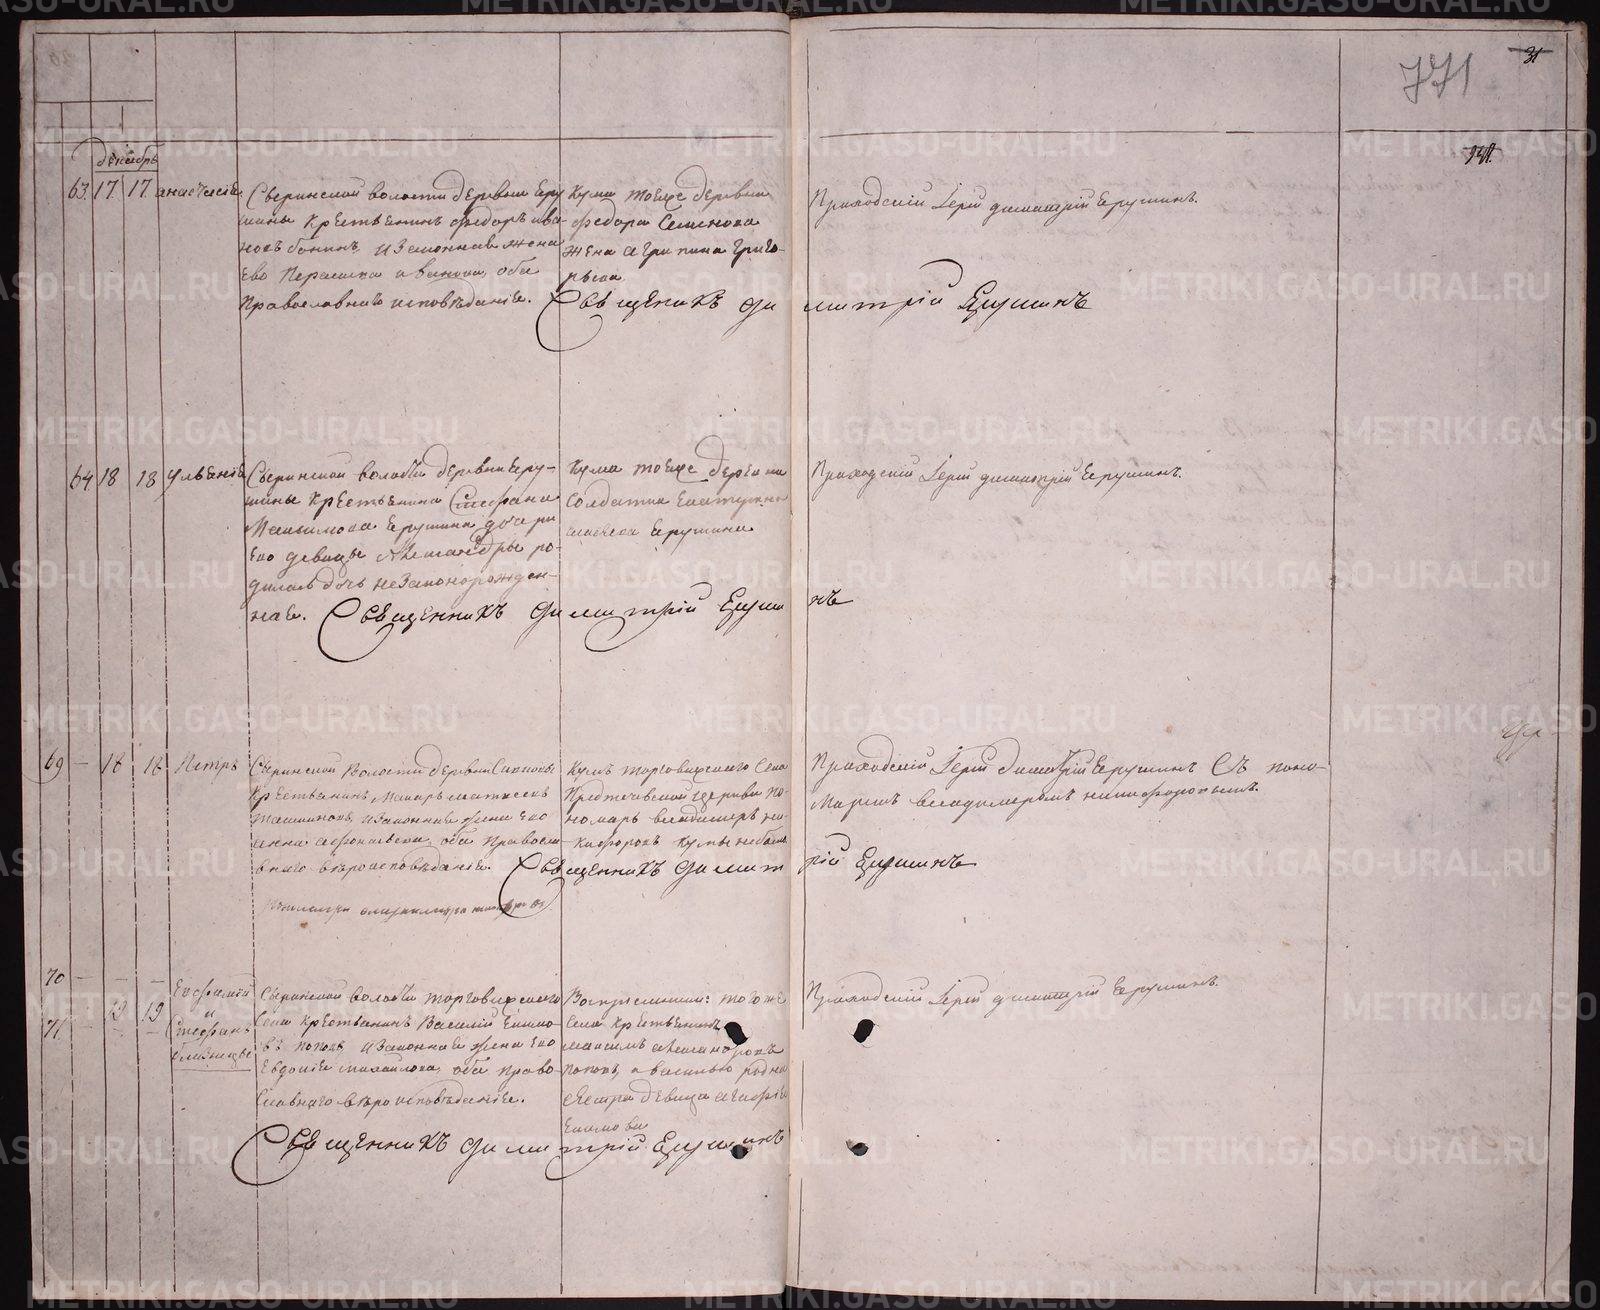 771
31
декабрь
63. 17 17 анастасіѧ
Сыринской волости деревни Еру
шины крестьянинъ федоръ ива
новъ и законная жена
Его Параскева иванова, оба
Православнаго исповѣданіѧ.
Кума тоеже деревни
федора Семенова
жена агрипина григо-
рьева
Приходскій Іерей димитрій Ерушинъ.
Священникъ Димитрій Ерушинъ
64 18 18 Ульѧніѧ
Сыринской волости деревни Еру-
шины крестьянина Стефана
Максимова Ерушина дочери
Его девицы Александры ро-
дилась дочь незаконорожден-
наѧ.
Кума тоеже деревни
Солдатка
Ерушина
Приходскій Іерей димитрій Ерушинъ.
Священникъ Димитрій Ерушинъ
69 – 18 18 Петръ
Сыринской Волости деревни
Крестьянинъ Макаръ
и законная жена Его
анна оба Правосла
внаго вѣроисповѣданіѧ.
Кумъ торговижского Села
Предтечевской церкви по-
номарь владимеръ ни-
кифоровъ кумы небыло
Приходскій Іерей димитрій Ерушинъ Съ поно-
маремъ владимеромъ никифоровымъ.
Священникъ Димитрій Ерушинъ
70 – – –
71. 19 19
Евфимій
и
Стефанъ
близнецы
Сыринской волости торговижского
Села крестьянинъ Василій Еким-
въ поповъ, и законная жена Его
Евдокіѧ михайлова, оба право-
славнаго вѣроисповѣданіѧ.
Воспріемники: тогоже
Села крестьянинъ
максимъ
поповъ, и василью родна
сестра девица агафьѧ
Екимова
Приходскій Іерей димитрій Ерушинъ.
Священникъ Димитрій Ерушинъ
METRIKI.GASO-URAL.RU